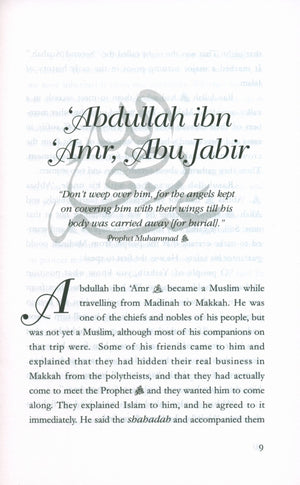 ‘Abdullah ibn
‘Amr, Abu Jabir
"Don't weep over him, for the angels kept
on covering him with their wings till his
body was carried away [for burial]."
Prophet Muhammad ﷺ
Abdullah ibn ‘Amr became a Muslim while
travelling from Madinah to Makkah. He was
one of the chiefs and nobles of his people, but
was not yet a Muslim, although most of his companions on
that trip were. Some of his friends came to him and
explained that they had hidden their real business in
Makkah from the polytheists, and that they had actually
come to meet the Prophet ﷺ and they wanted him to come
along. They explained Islam to him, and he agreed to it
immediately. He said the shahadah and accompanied them
9